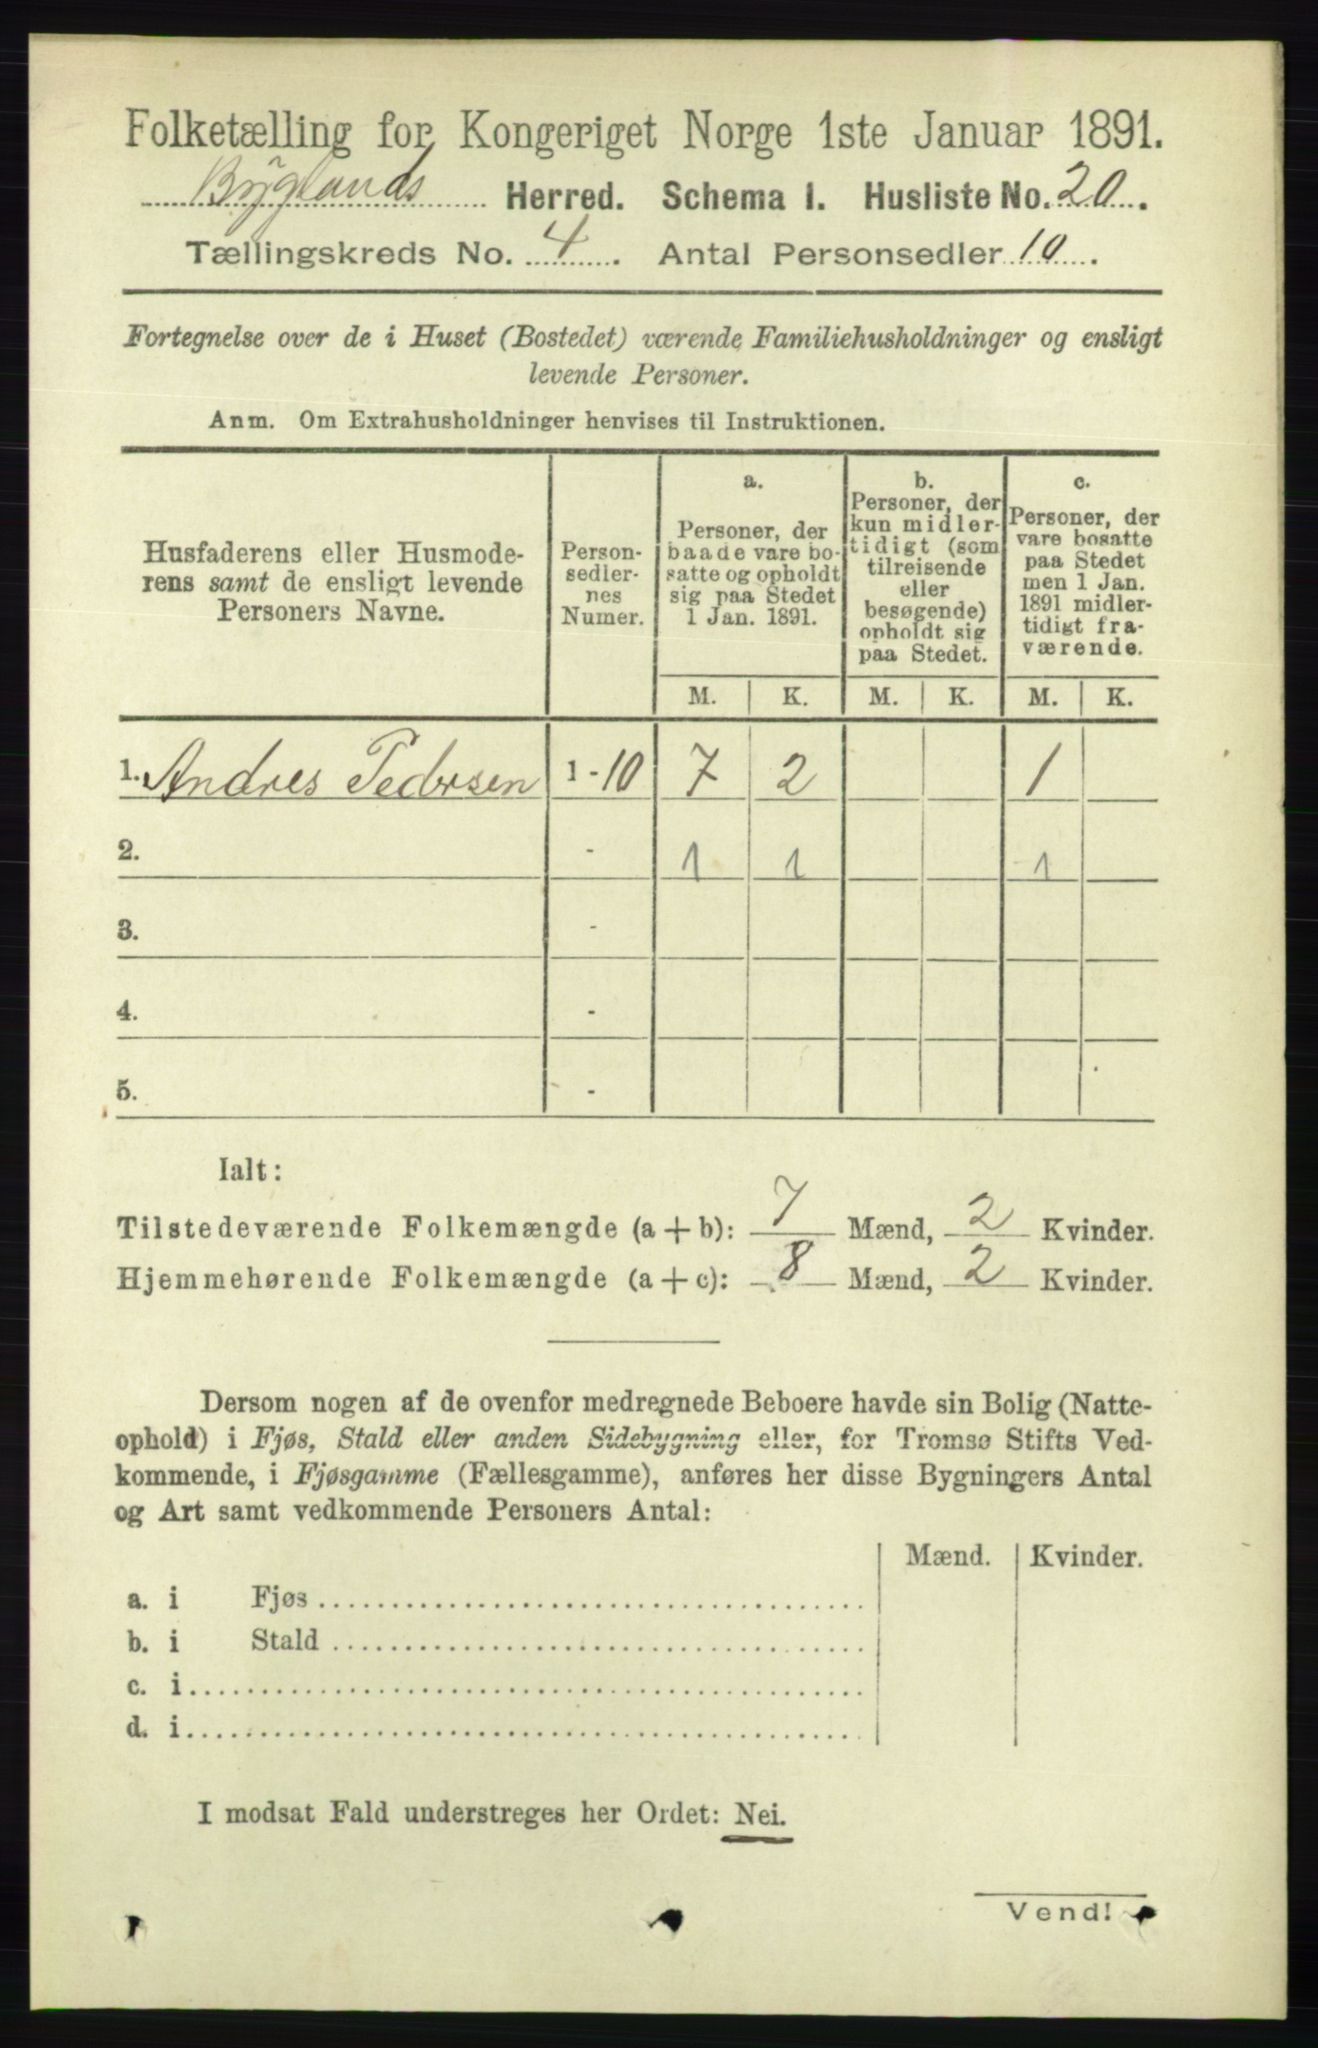 Folketælling for Kongeriget Norge 1ste Januar 1891.
Byglands Herred. Schema 1. Husliste No. 20.
Tællingskreds No. 4. Antal Personsedler 10.
Fortegnelse over de i Huset (Bostedet) værende Familiehusholdninger og ensligt
levende Personer.
Anm. Om Extrahusholdninger henvises til Instruktionen.
Husfaderens eller Husmode-
rens samt de ensligt levende
Personers Navne.
Person-
sedler-
nes
Numer.
a.
Personer, der
baade vare bo-
satte og opholdt
sig paa Stedet
1 Jan. 1891.
b.
Personer, der
kun midler-
tidigt (som
tilreisende
eller
besøgende)
opholdt sig
paa Stedet.
c.
Personer, der
vare bosatte
paa Stedet
men 1 Jan.
1891 midler-
tidigt fra-
værende.
M. K. M. K. M. K.
1. Andres Pedersen 1-10 7 2 1
2. - 1 1 1
3. -
4. -
5. -
Ialt:
Tilstedeværende Folkemængde (a + b): 7 Mænd, 2 Kvinder.
Hjemmehørende Folkemængde (a + c): 8 Mænd, 2 Kvinder.
Dersom nogen af de ovenfor medregnede Beboere havde sin Bolig (Natte-
ophold) i Fjøs, Stald eller anden Sidebygning eller, for Tromsø Stifts Ved-
kommende, i Fjøsgamme (Fællesgamme), anføres her disse Bygningers Antal
og Art samt vedkommende Personers Antal:
Mænd. Kvinder.
a. i Fjøs
b. i Stald
c. i
d. i
I modsat Fald understreges her Ordet: Nei.
Vend!